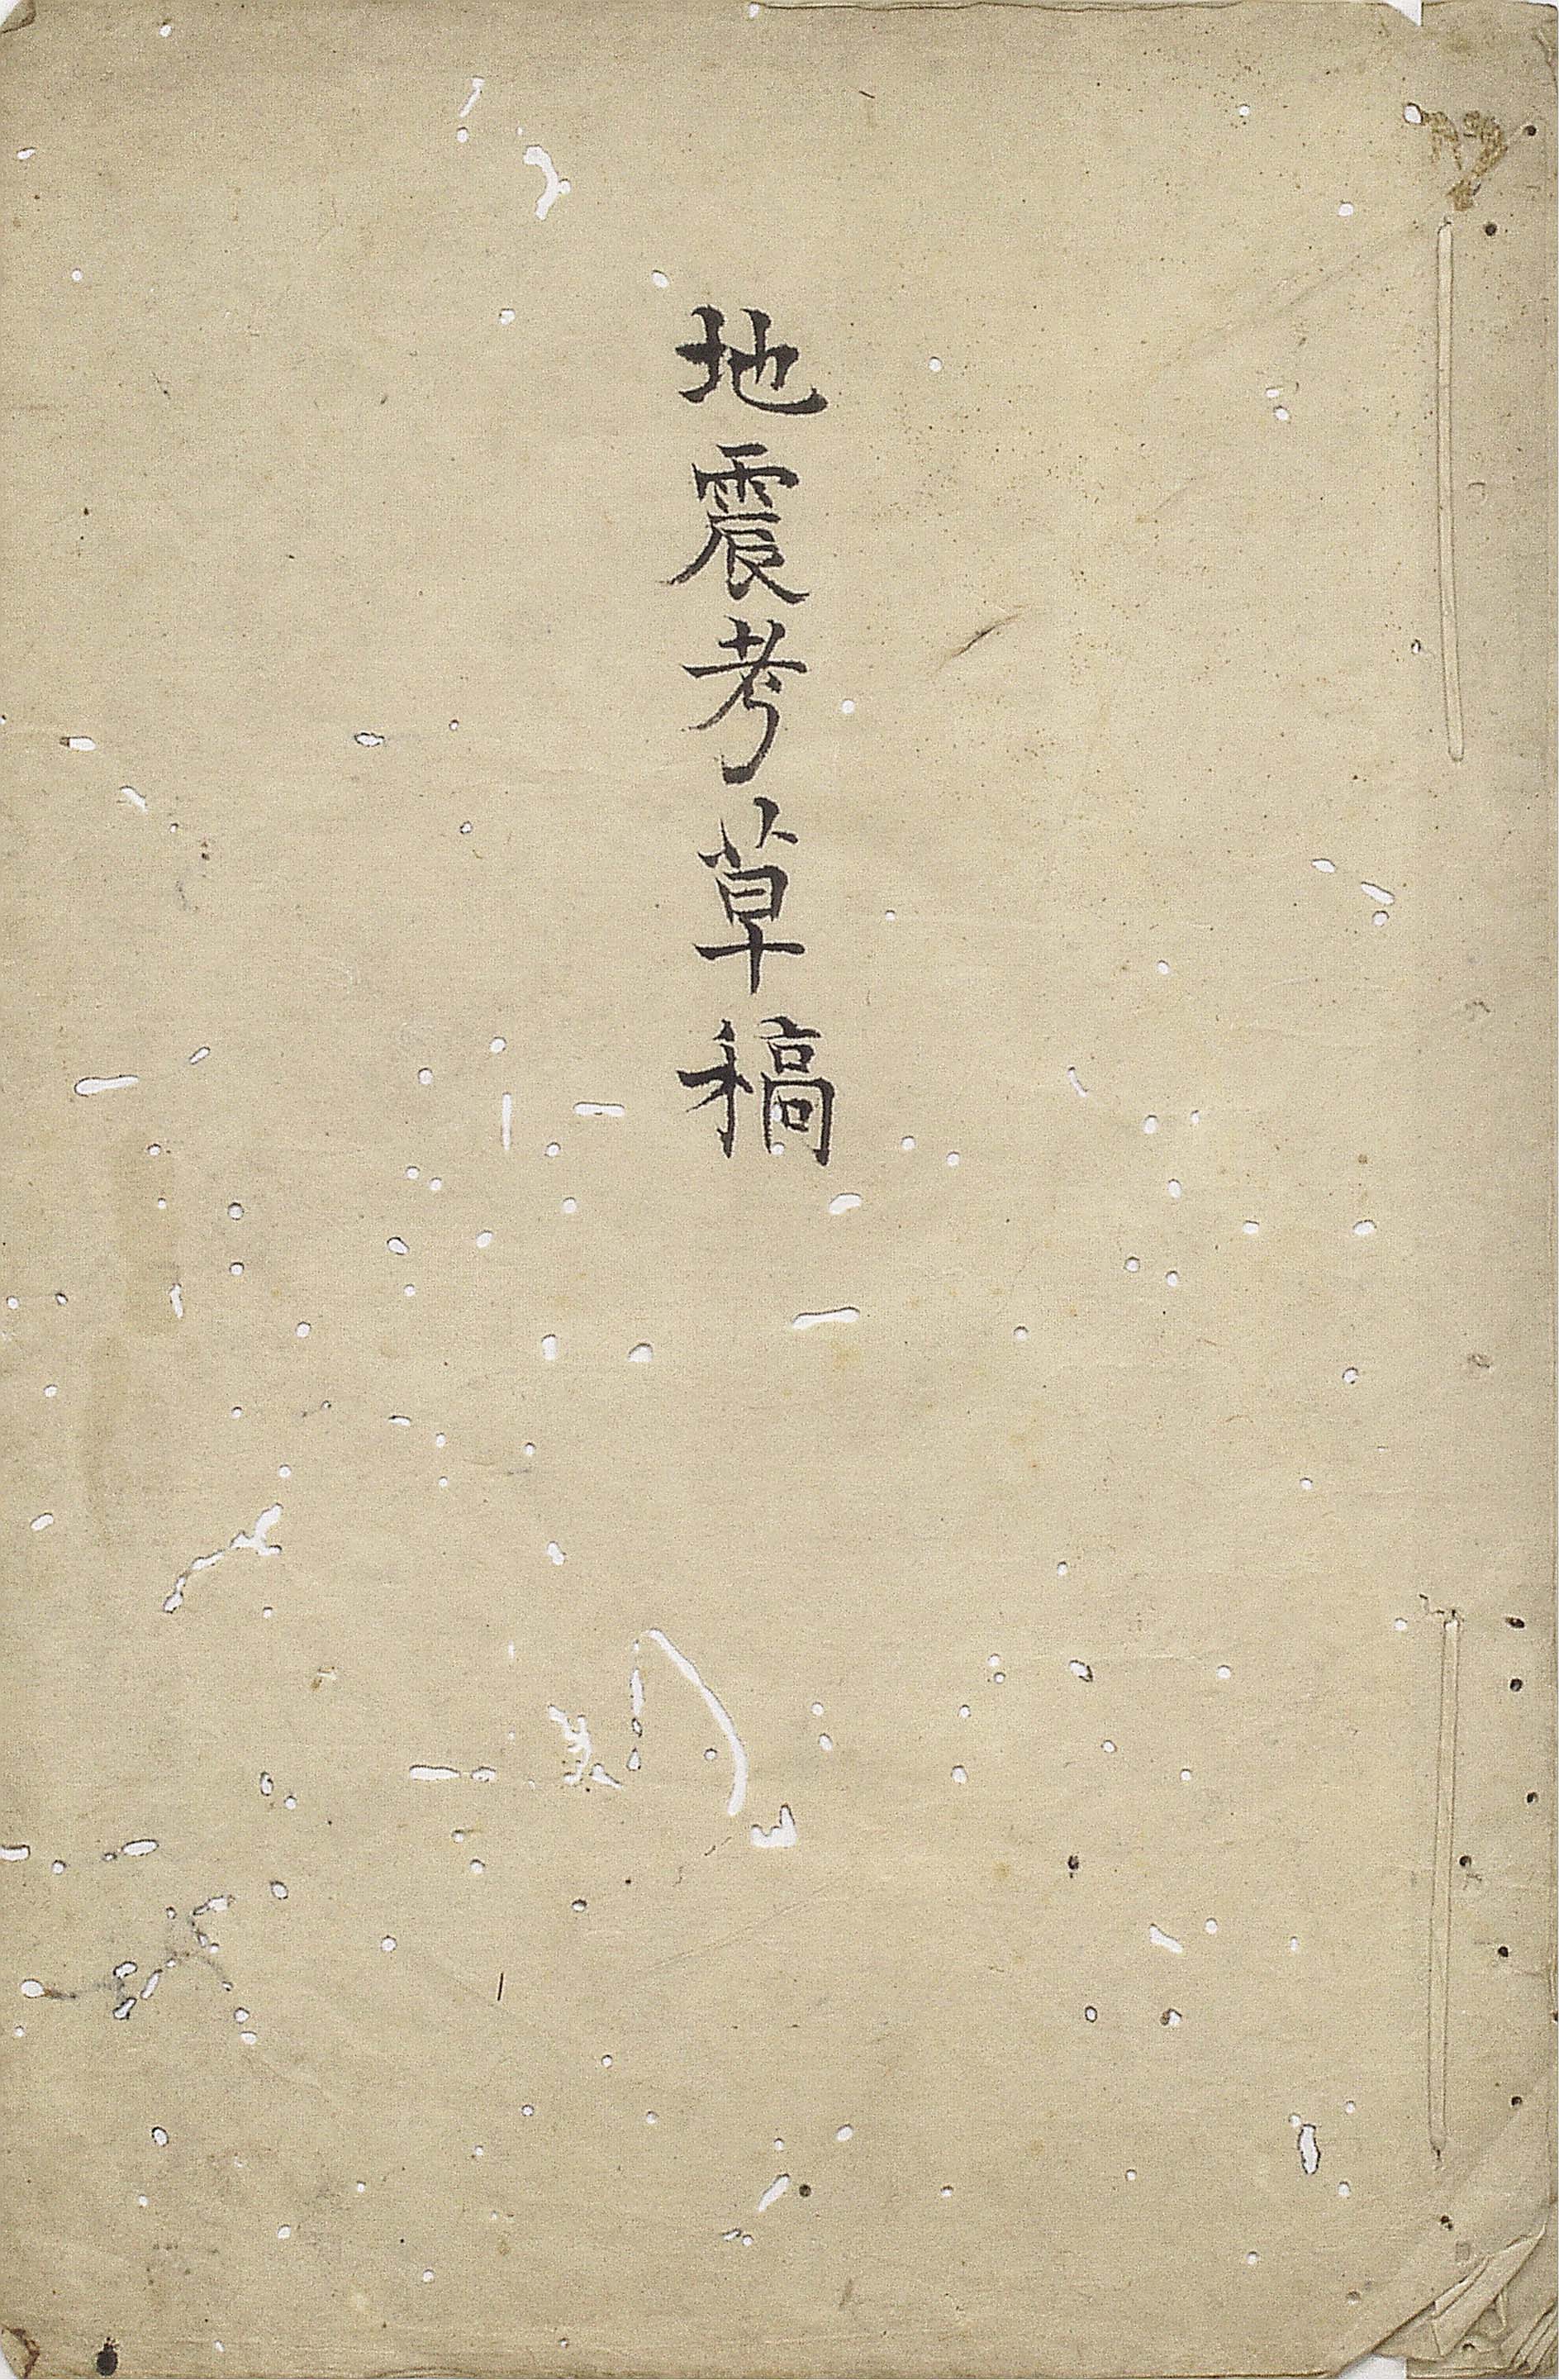 地震考草稿